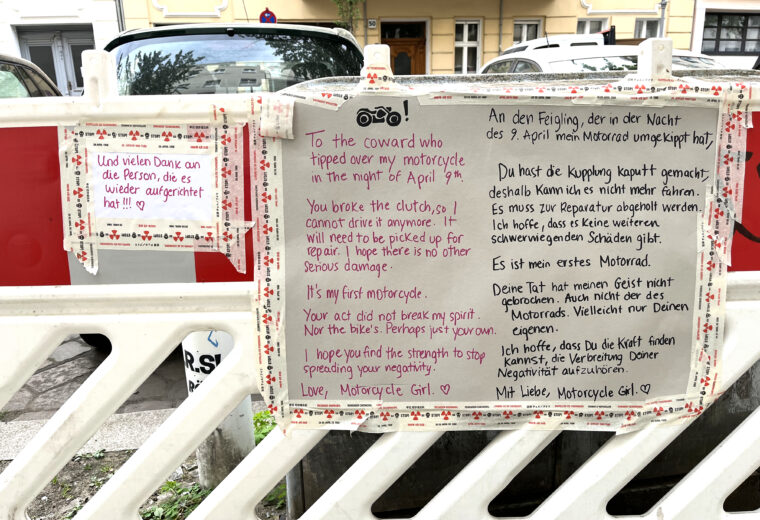 50
Und vielen Dank an
die Person, die es
wieder aufgerichtet
hat!!! ♡
!
To the coward who
tipped over my motorcycle
in the night of April 9th.
You broke the clutch, so I
cannot drive it anymore. It
will need to be picked up for
repair. I hope there is no other
serious damage.
It's my first motorcycle.
Your act did not break my spirit.
Nor the bike's. Perhaps just your own.
I hope you find the strength to stop
spreading your negativity!
Love, Motorcycle Girl. ♡
An den Feigling, der in der Nacht
des 9. April mein Motorrad umgekippt hat,
Du hast die Kupplung kaputt gemacht,
deshalb kann ich es nicht mehr fahren.
Es muss zur Reparatur abgeholt werden.
Ich hoffe, dass es keine weiteren
schwerwiegenden Schäden gibt.
Es ist mein erstes Motorrad.
Deine Tat hat meinen Geist nicht
gebrochen. Auch nicht der des
Motorrads. Vielleicht nur Deinen
eigenen.
Ich hoffe, dass Du die Kraft finden
kannst, die Verbreitung Deiner
Negativität aufzuhören.
Mit Liebe, Motorcycle Girl. ♡
R.SI